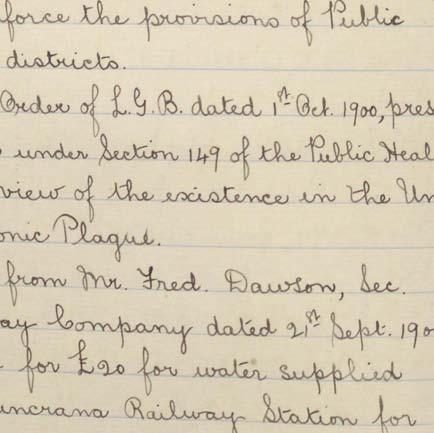 force the provisions of Public
districts.
Order of L.G.B. dated 1st Oct. 1900, pres
under Section 149 of the Public Heal
view of the existence in the Un
onic Plague.
from Mr. Fred. Dawson, Sec.
ay Company dated 21st Sept. 190
for £20 for water supplied
uncrana Railway Station for